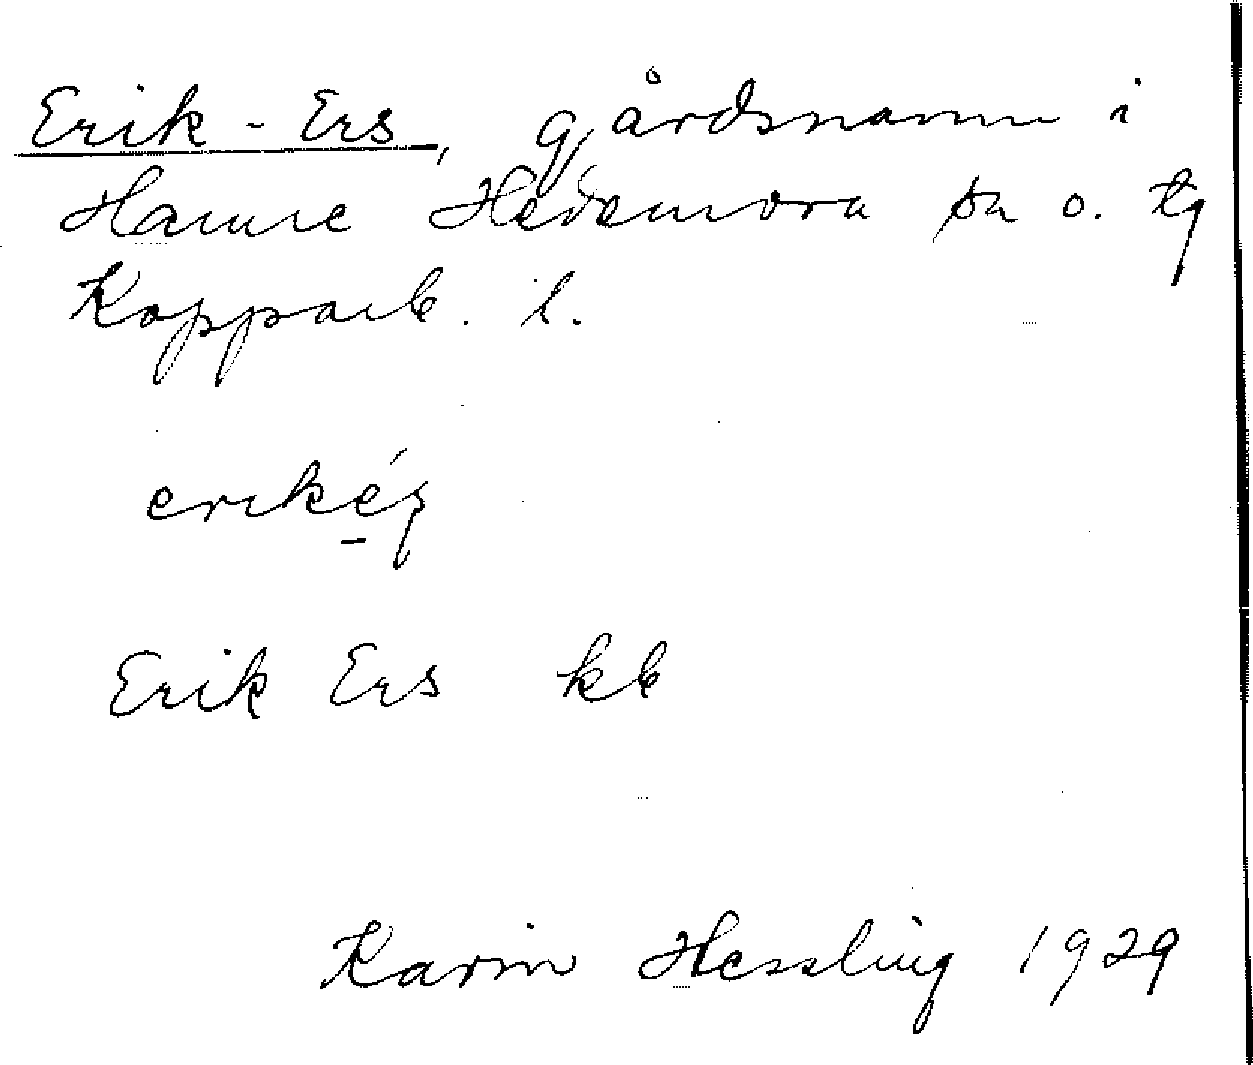 Erik-Ers, gårdsnamn i
Hamre Hedemora sn o. tg
Kopparb. l.
erikés
Erik Ers kb
Karin Hessling 1929